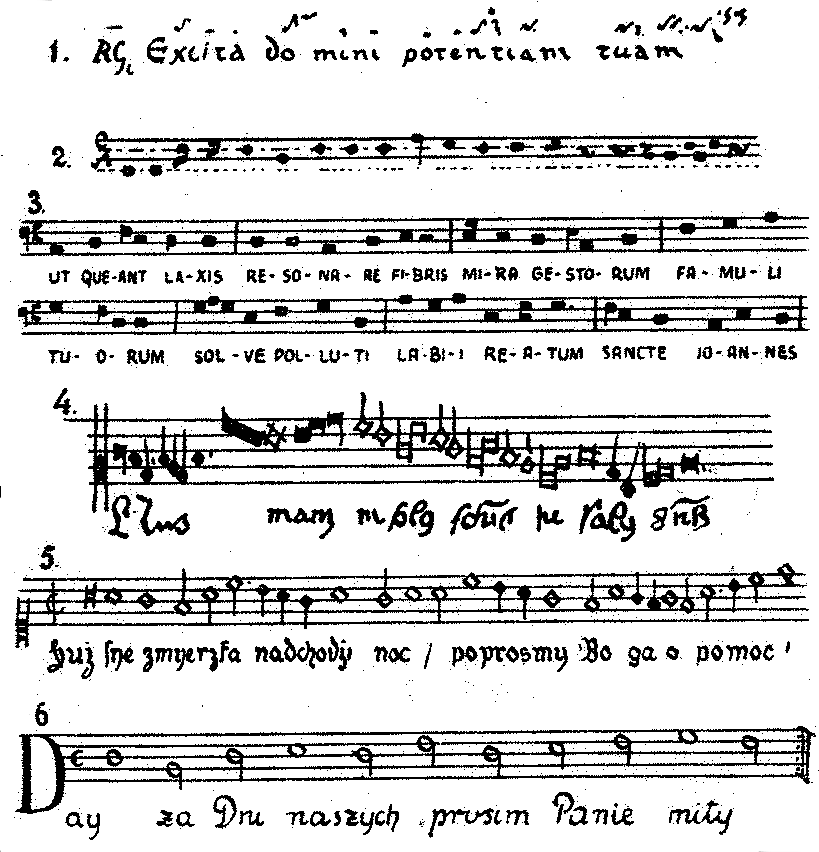 1. Excita do mini potentiam tuam
2.
3.
UT QUE-ANT LA-XIS RE-SO-NA-RE FI-BRIS MI-RA GE-STO-RUM FA-MU-LI
TU-O-RUM SOL-VE POL-LU-TI LA-BI-I RE-A-TUM SANCTE IO-AN-NES
4.
mam
5.
Już sye zmyerzka nadchody noc / poprosmy Bo ga o pomoc
6
Day za Dnu naszych prosim Panie miły